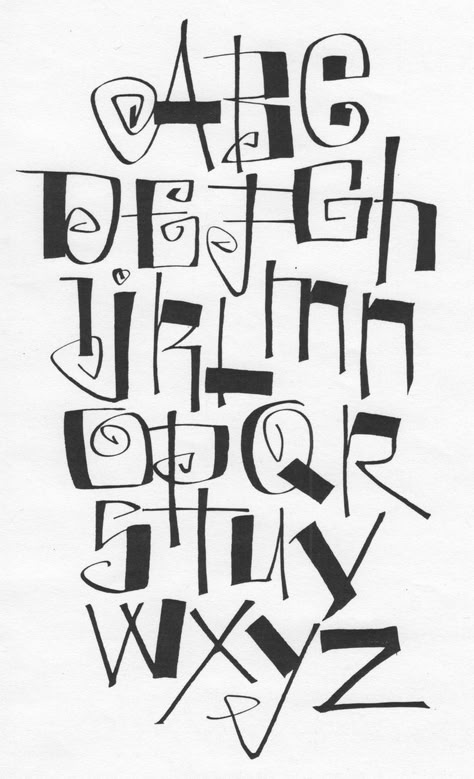 ABC
DEFGh
IjkLmn
OPQR
STUV
WXYZ